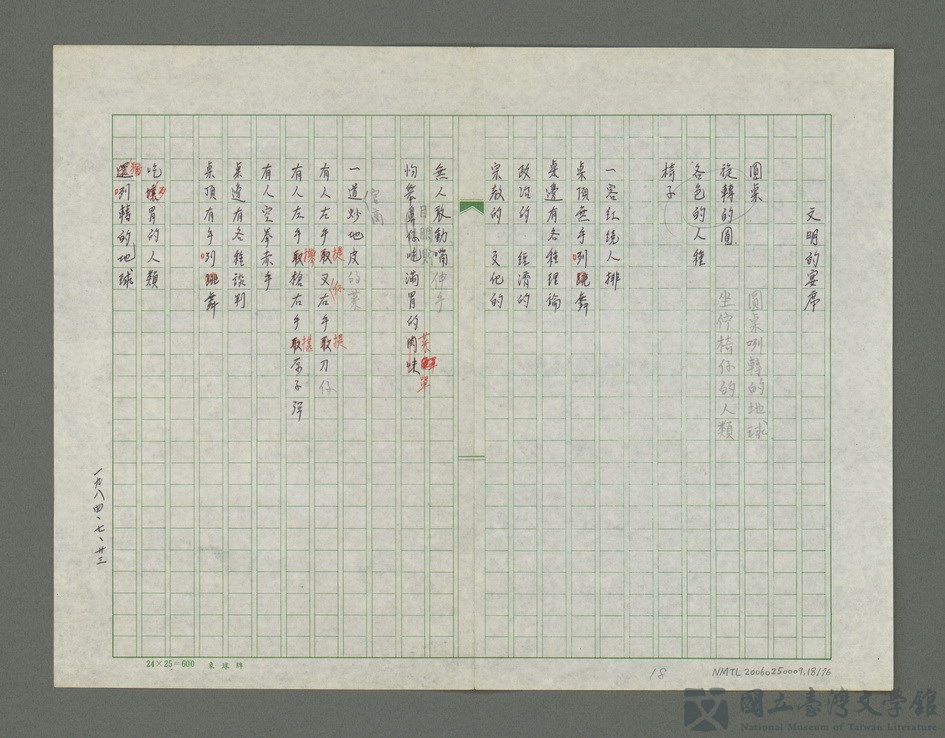 文明的宴席
圓桌
圓桌咧轉的地球
旋轉的圓
坐佇椅仔的人類
各色的人種
椅子
一客紅燒人排
桌頂無手咧跳舞
桌邊有各種理論
政治的 經濟的
宗教的 文化的
無人敢動嘴
伸手
目眮
菜單
滿胃的肉味
一道炒地皮
的菜
有人左手取叉右手取刀
仔
提
提
有人左手取槍右手取原子彈
有人空拳赤手
桌邊有各種談判
桌頂有手咧跳舞
吃壞胃的人類
還咧轉的地球
一九八四、七、廿三
24×25=600
18
NMTL20060250009.18/76
國立臺灣文學館
National Museum of Taiwan Literature